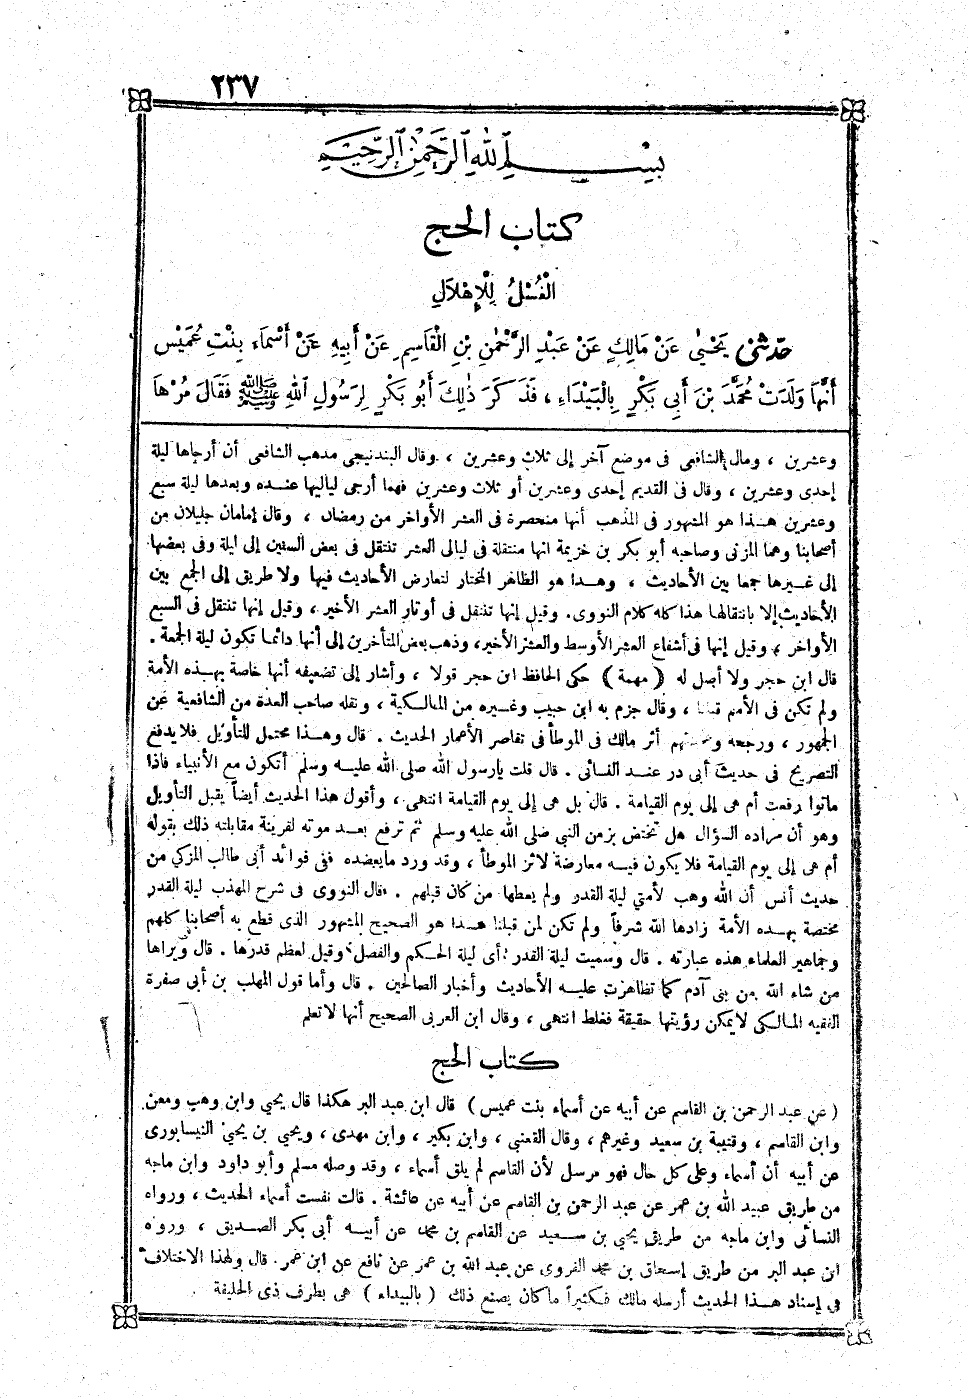 ٢٣٧
بِسْمِ اللَّهِ الرَّحْمَٰنِ الرَّحِيمِ
كتاب الحج
الْغُسْلُ لِلْإِهْلَالِ
حَدَّثَنِي يَحْيَى عَنْ مَالِكٍ عَنْ عَبْدِ الرَّحْمَٰنِ بْنِ الْقَاسِمِ عَنْ أَبِيهِ عَنْ أَسْمَاءَ بِنْتِ عُمَيْسٍ
أَنَّهَا وَلَدَتْ مُحَمَّدَ بْنَ أَبِي بَكْرٍ بِالْبَيْدَاءِ ، فَذَكَرَ ذَٰلِكَ أَبُو بَكْرٍ لِرَسُولِ اللَّهِ ﷺ فَقَالَ مُرْهَا
وعشرين ، ومال الشافعى فى موضع آخر إلى ثلاث وعشرين ، وقال البندنيجى مذهب الشافعى أن أرجاها ليلة
إحدى وعشرين ، وقال فى القديم إحدى وعشرين أو ثلاث وعشرين فهما أرجى لياليها عنده وبعدها ليلة سبع
وعشرين هذا هو المشهور فى المذهب أنها منحصرة فى العشر الأواخر من رمضان ، وقال إمامان جليلان من
أصحابنا وهما المزنى وصاحبه أبو بكر بن خزيمة انها منتقلة فى ليالى العشر تنتقل فى بعض السنين إلى ليلة وفى بعضها
إلى غيرها جمعا بين الأحاديث ، وهذا هو الظاهر المختار لتعارض الأحاديث فيها ولا طريق إلى الجمع بين
الأحاديث إلا بانتقالها هذا كله كلام النووى. وقيل إنها تنتقل فى أوتار العشر الأخير ، وقيل إنها تنتقل فى السبع
الأواخر ، وقيل إنها فى أشفاع العشر الأوسط والعشر الأخير، وذهب بعض المتأخرين إلى أنها دائما تكون ليلة الجمعة .
قال ابن حجر ولا أصل له ( مهمة ) حكى الحافظ ابن حجر قولا ، وأشار إلى تضعيفه أنها خاصة بهذه الأمة
ولم تكن فى الأمم قبلنا ، وقال جزم به ابن حبيب وغيره من المالكية ، ونقله صاحب العدة من الشافعية عن
الجمهور ، ورجحه أثر مالك فى الموطأ فى تقاصر الأعمار الحديث . قال وهذا محتمل للتأويل فلا يدفع
التصريح فى حديث أبى ذر عند النسائى . قال قلت يارسول الله صلى الله عليه وسلم أتكون مع الأنبياء فاذا
ماتوا رفعت أم هى إلى يوم القيامة . قال بل هى إلى يوم القيامة انتهى ، وأقول هذا الحديث أيضاً يقبل التأويل
وهو أن مراده السؤال هل تختص بزمن النبي صلى الله عليه وسلم ثم ترفع بعد موته لقرينة مقابلته ذلك بقوله
أم هى إلى يوم القيامة فلا يكون فيه معارضة لاثر الموطأ ، وقد ورد مايعضده ففى فوائد أبى طالب المزكى من
حديث أنس أن الله وهب لأمتى ليلة القدر ولم يعطها من كان قبلهم . قال النووى فى شرح المهذب ليلة القدر
مختصة بهذه الأمة زادها الله شرفاً ولم تكن لمن قبلنا هذا هو الصحيح المشهور الذى قطع به أصحابنا كلهم
وجماهير العلماء هذه عبارته . قال وسميت ليلة القدر أى ليلة الحكم والفصل وقيل لعظم قدرها . قال ويراها
من شاء الله من بنى آدم كما تظاهرت عليه الأحاديث وأخبار الصالحين . قال وأما قول المهلب بن أبى صفرة
الفقيه المالكى لايمكن رؤيتها حقيقة فغلط انتهى ، وقال ابن العربى الصحيح أنها لا تعلم
كتاب الحج
( عن عبد الرحمن بن القاسم عن أبيه عن أسماء بنت عميس ) قال ابن عبد البر هكذا قال يحيى وابن وهب ومعن
وابن القاسم ، وقتيبة بن سعيد وغيرهم ، وقال القعنبى ، وابن بكير ، وابن مهدى ، ويحيى بن يحيى النيسابورى
عن أبيه أن أسماء وعلى كل حال فهو مرسل لأن القاسم لم يلق أسماء ، وقد وصله مسلم وأبو داود وابن ماجه
من طريق عبيد الله بن عمر عن عبد الرحمن بن القاسم عن أبيه عن عائشة . قالت نفست أسماء الحديث ، ورواه
النسائى وابن ماجه من طريق يحيى بن سعيد عن القاسم بن محمد عن أبيه أبى بكر الصديق ، ورواه
ابن عبد البر من طريق إسحاق بن محمد الفروى عن عبد الله بن عمر عن نافع عن ابن عمر. قال ولهذا الاختلاف
فى إسناد هذا الحديث أرسله مالك فكثيراً ماكان يصنع ذلك ( بالبيداء ) هى بطرف ذى الحليفة